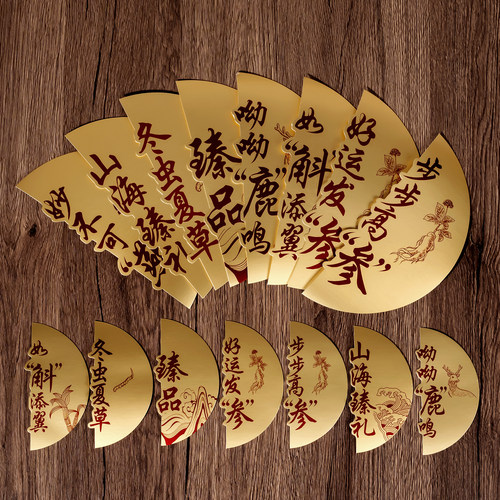 妙不可
山海臻礼
冬虫夏草
臻品
呦呦“鹿”鸣
如“斛”添翼
好运发“参”
步步高“参”
如“斛”添翼
冬虫夏草
臻品
好运发“参”
步步高“参”
山海臻礼
呦呦“鹿”鸣